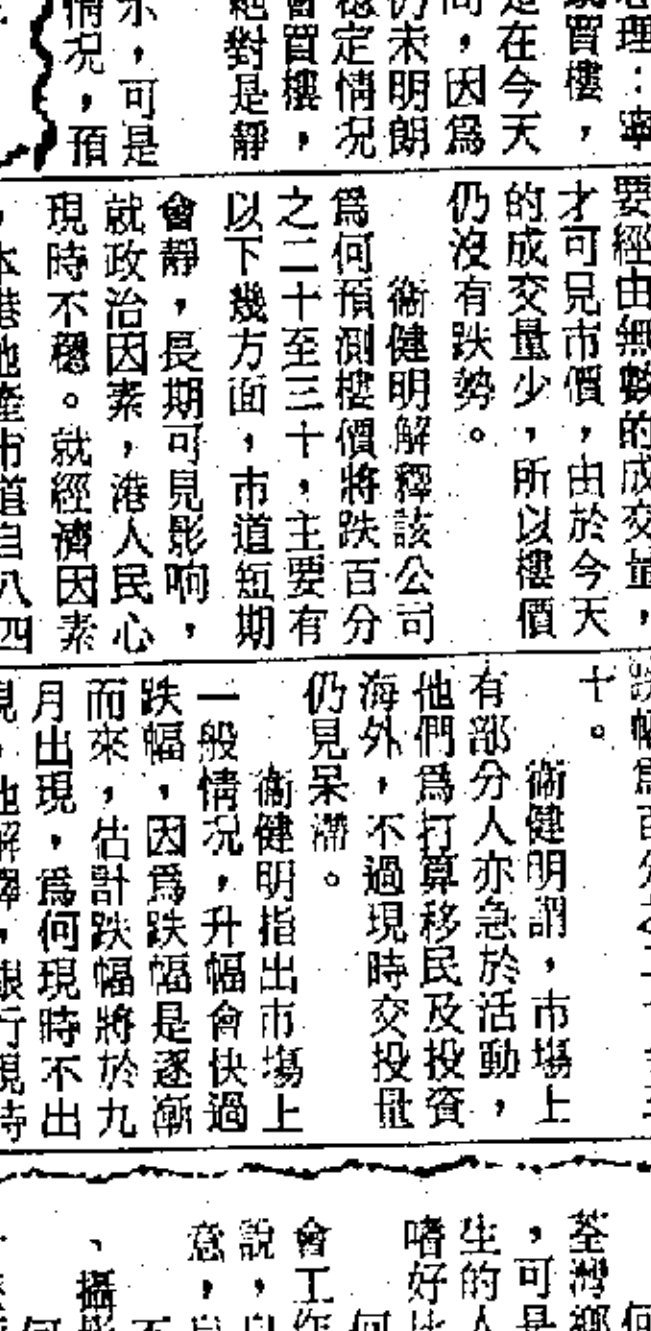 理：寧
買樓，
在今天
，因爲
仍未明朗
穩定情况
會買樓，
絕對是靜
示，可是
情况，預
要經由無數的成交量，
才可見市價，由於今天
的成交量少，所以樓價
仍沒有跌勢。
衞健明解釋該公司
爲何預測樓價將跌百分
之二十至三十，主要有
以下幾方面，市道短期
會靜，長期可見影响，
就政治因素，港人民心
現時不穩。就經濟因素
，本港地產市道自八四
跌幅爲百分之二十至三
十。
衞健明謂，市塲上
有部分人亦急於活動，
他們爲打算移民及投資
海外，不過現時交投量
仍見呆滯。
衞健明指出市塲上
一般情况，升幅會快過
跌幅，因爲跌幅是逐漸
而來，估計跌幅將於九
月出現，爲何現時不出
現。他解釋，銀行現時
荃灣鄉
，可是
生的人
嗜好比
何
會工作
說，
意，
、攝影